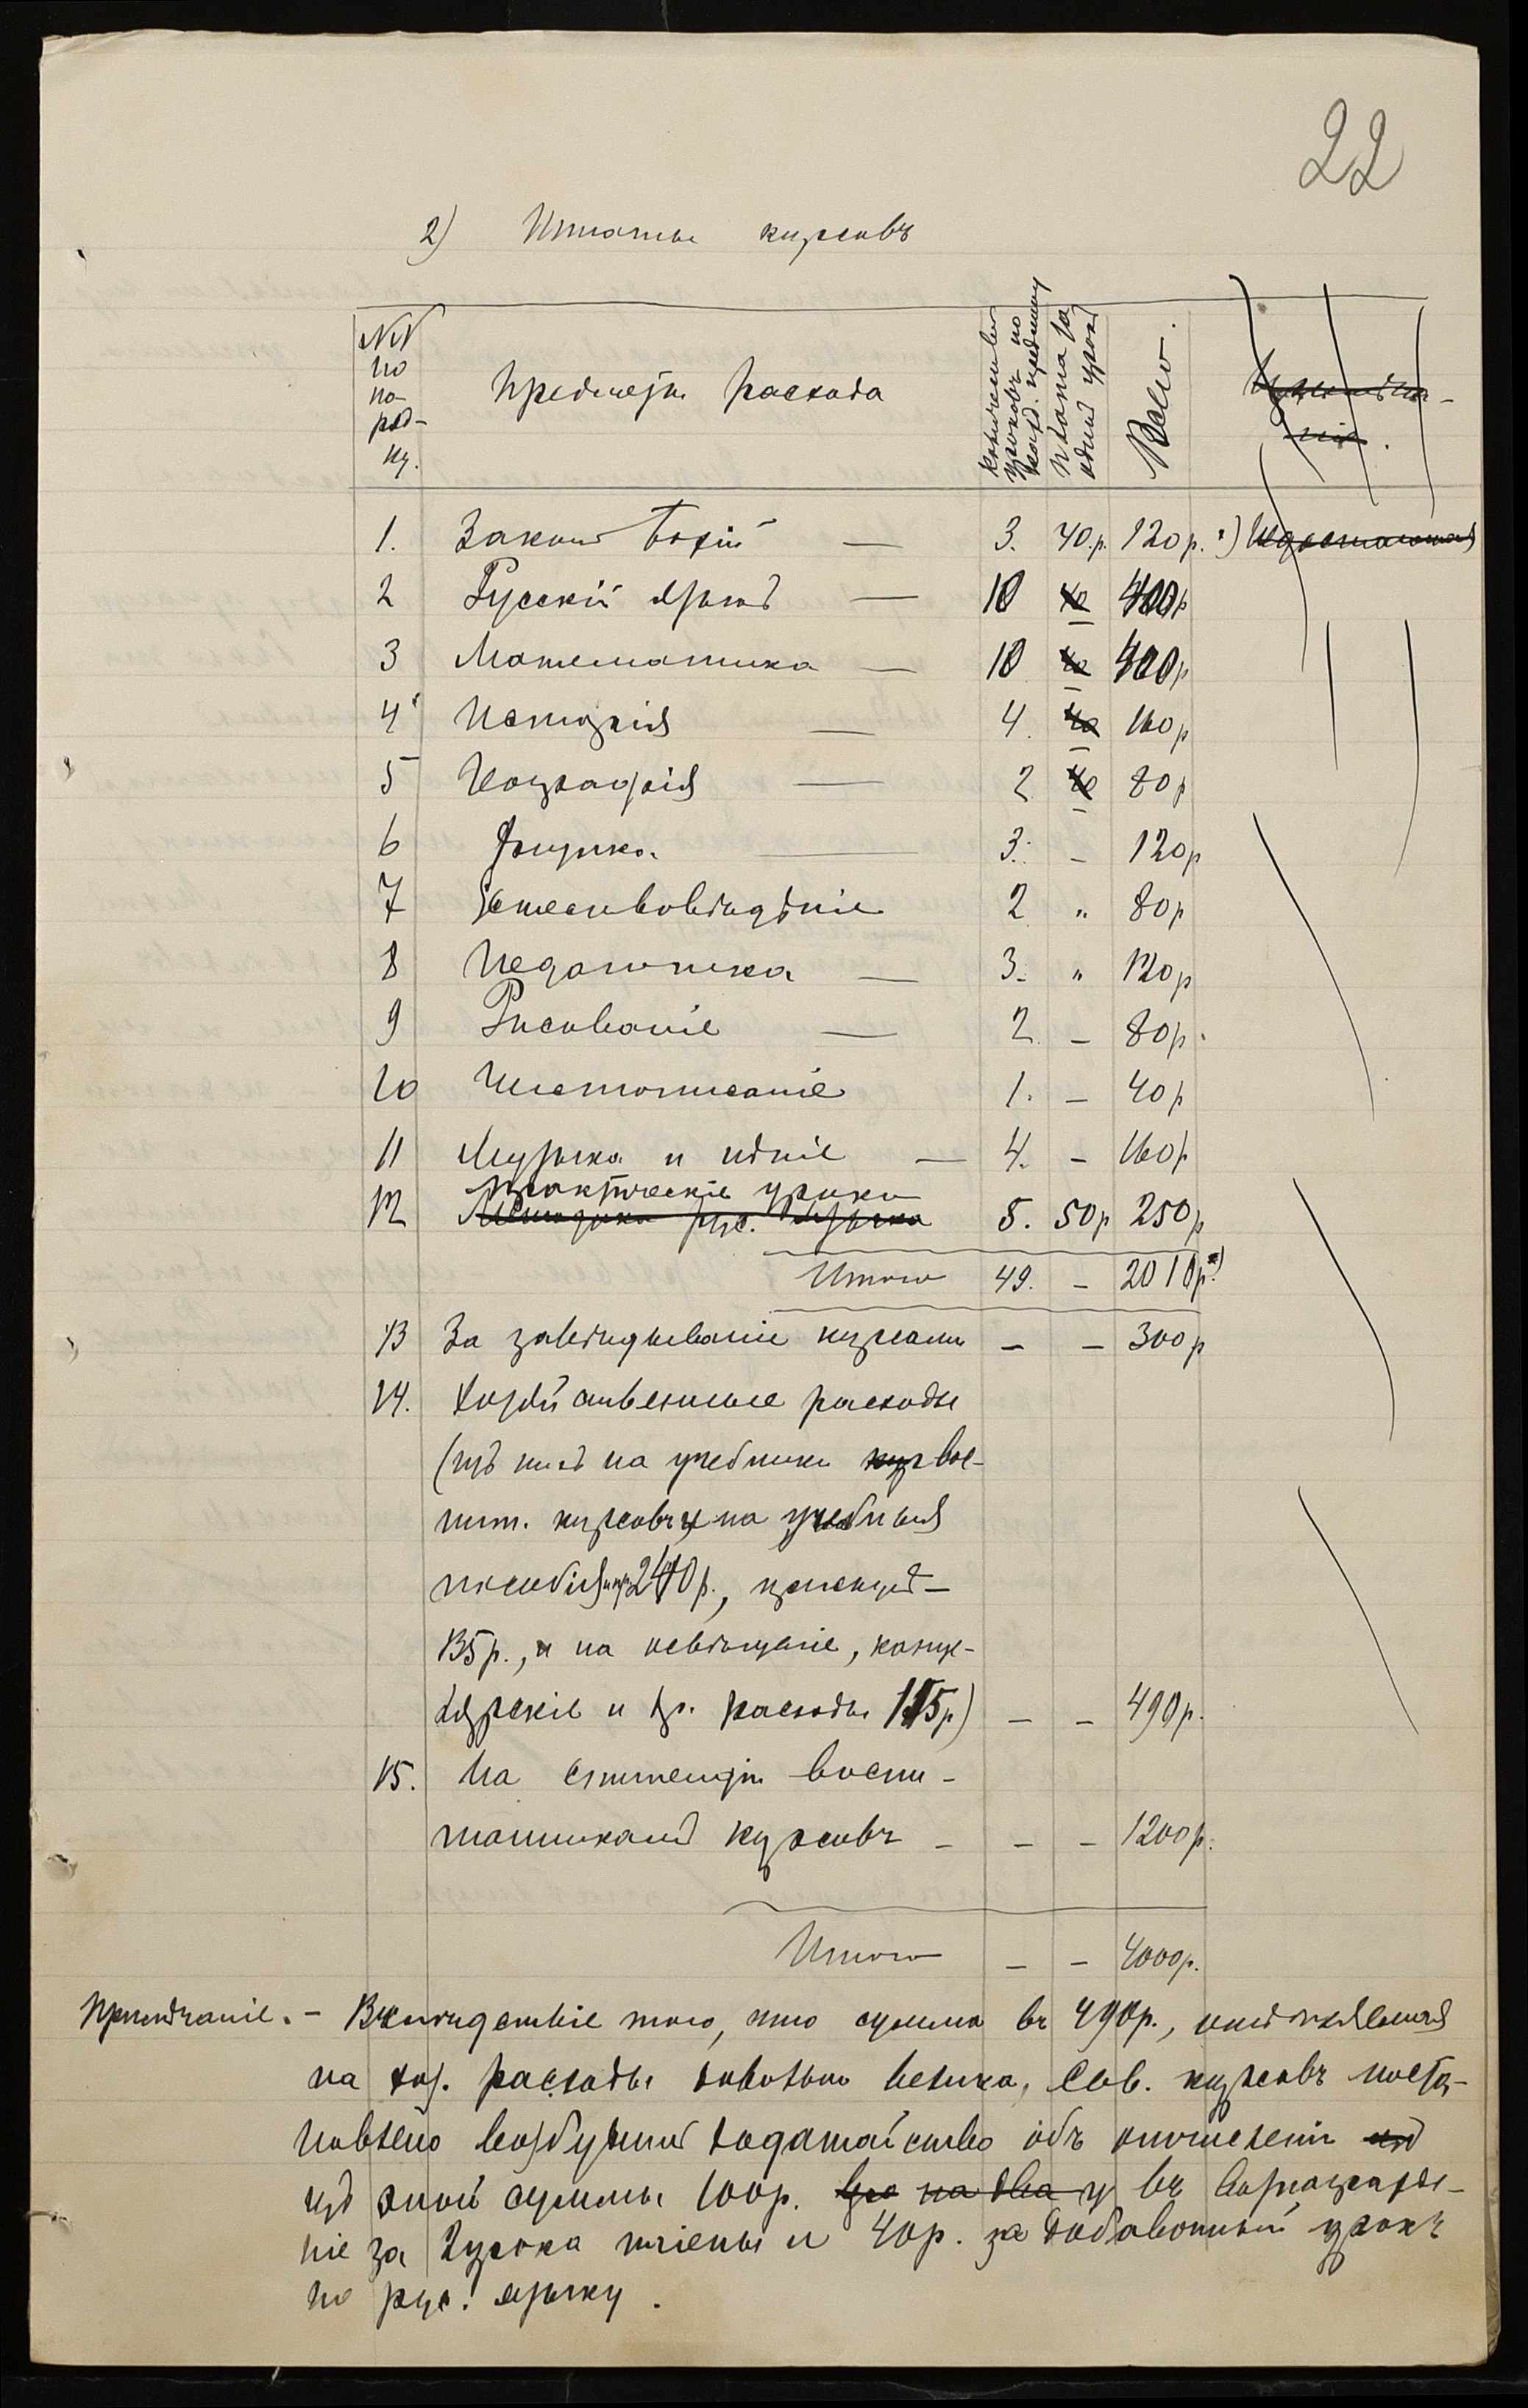 22
2) Штаты курсовъ
№№ по по-ряд-ку.
Предметы расхода
Количество уроковъ по кажд. предмету
Плата за одинъ урокъ
Всего.
Примѣча-
нія.
1. Законъ Божій — 3. 40.р. 120р.
2 Русскій языкъ — 10 40 400р
3 Математика — 10 40 400р
4 Исторія — 4. 40 160р
5 Географія — 2 40 80р
6 Физика — 3. – 120р
7 Естествовѣдѣніе 2 „ 80р
8 Педагогика — 3. „ 120р
9 Рисованіе — 2. – 80р.
10 Чистописаніе 1. – 40р
11 Музыка и пѣніе — 4. – 160р
Практическіе уроки
12 Методика рус. языка 5. 50р 250р
Итого 49. – 2010р.*)
13 За завѣдываніе курсами – – 300р
14. Хозяйственные расходы
(изъ нихъ на учебники вос-
пит. курсовъ и на учебныя
пособія 240р., прислугѣ –
135р., и на освѣщеніе, канце-
лярскіе и др. расходы 115р) – – 490р.
15. На стипендіи воспи-
танникамъ курсовъ – – – 1200р.
Итого – – 4000р.
Примѣчаніе. – Вслѣдствіе того, что сумма въ 490р.,
на хоз. расходы довольно велика, Сов. курсовъ поста-
новлено возбудить ходатайство объ отчисленіи
изъ этой суммы 100р. въ вознагражде-
ніе за 2 урока пчелов. и 40р. за добавочный урокъ
по рус. языку.